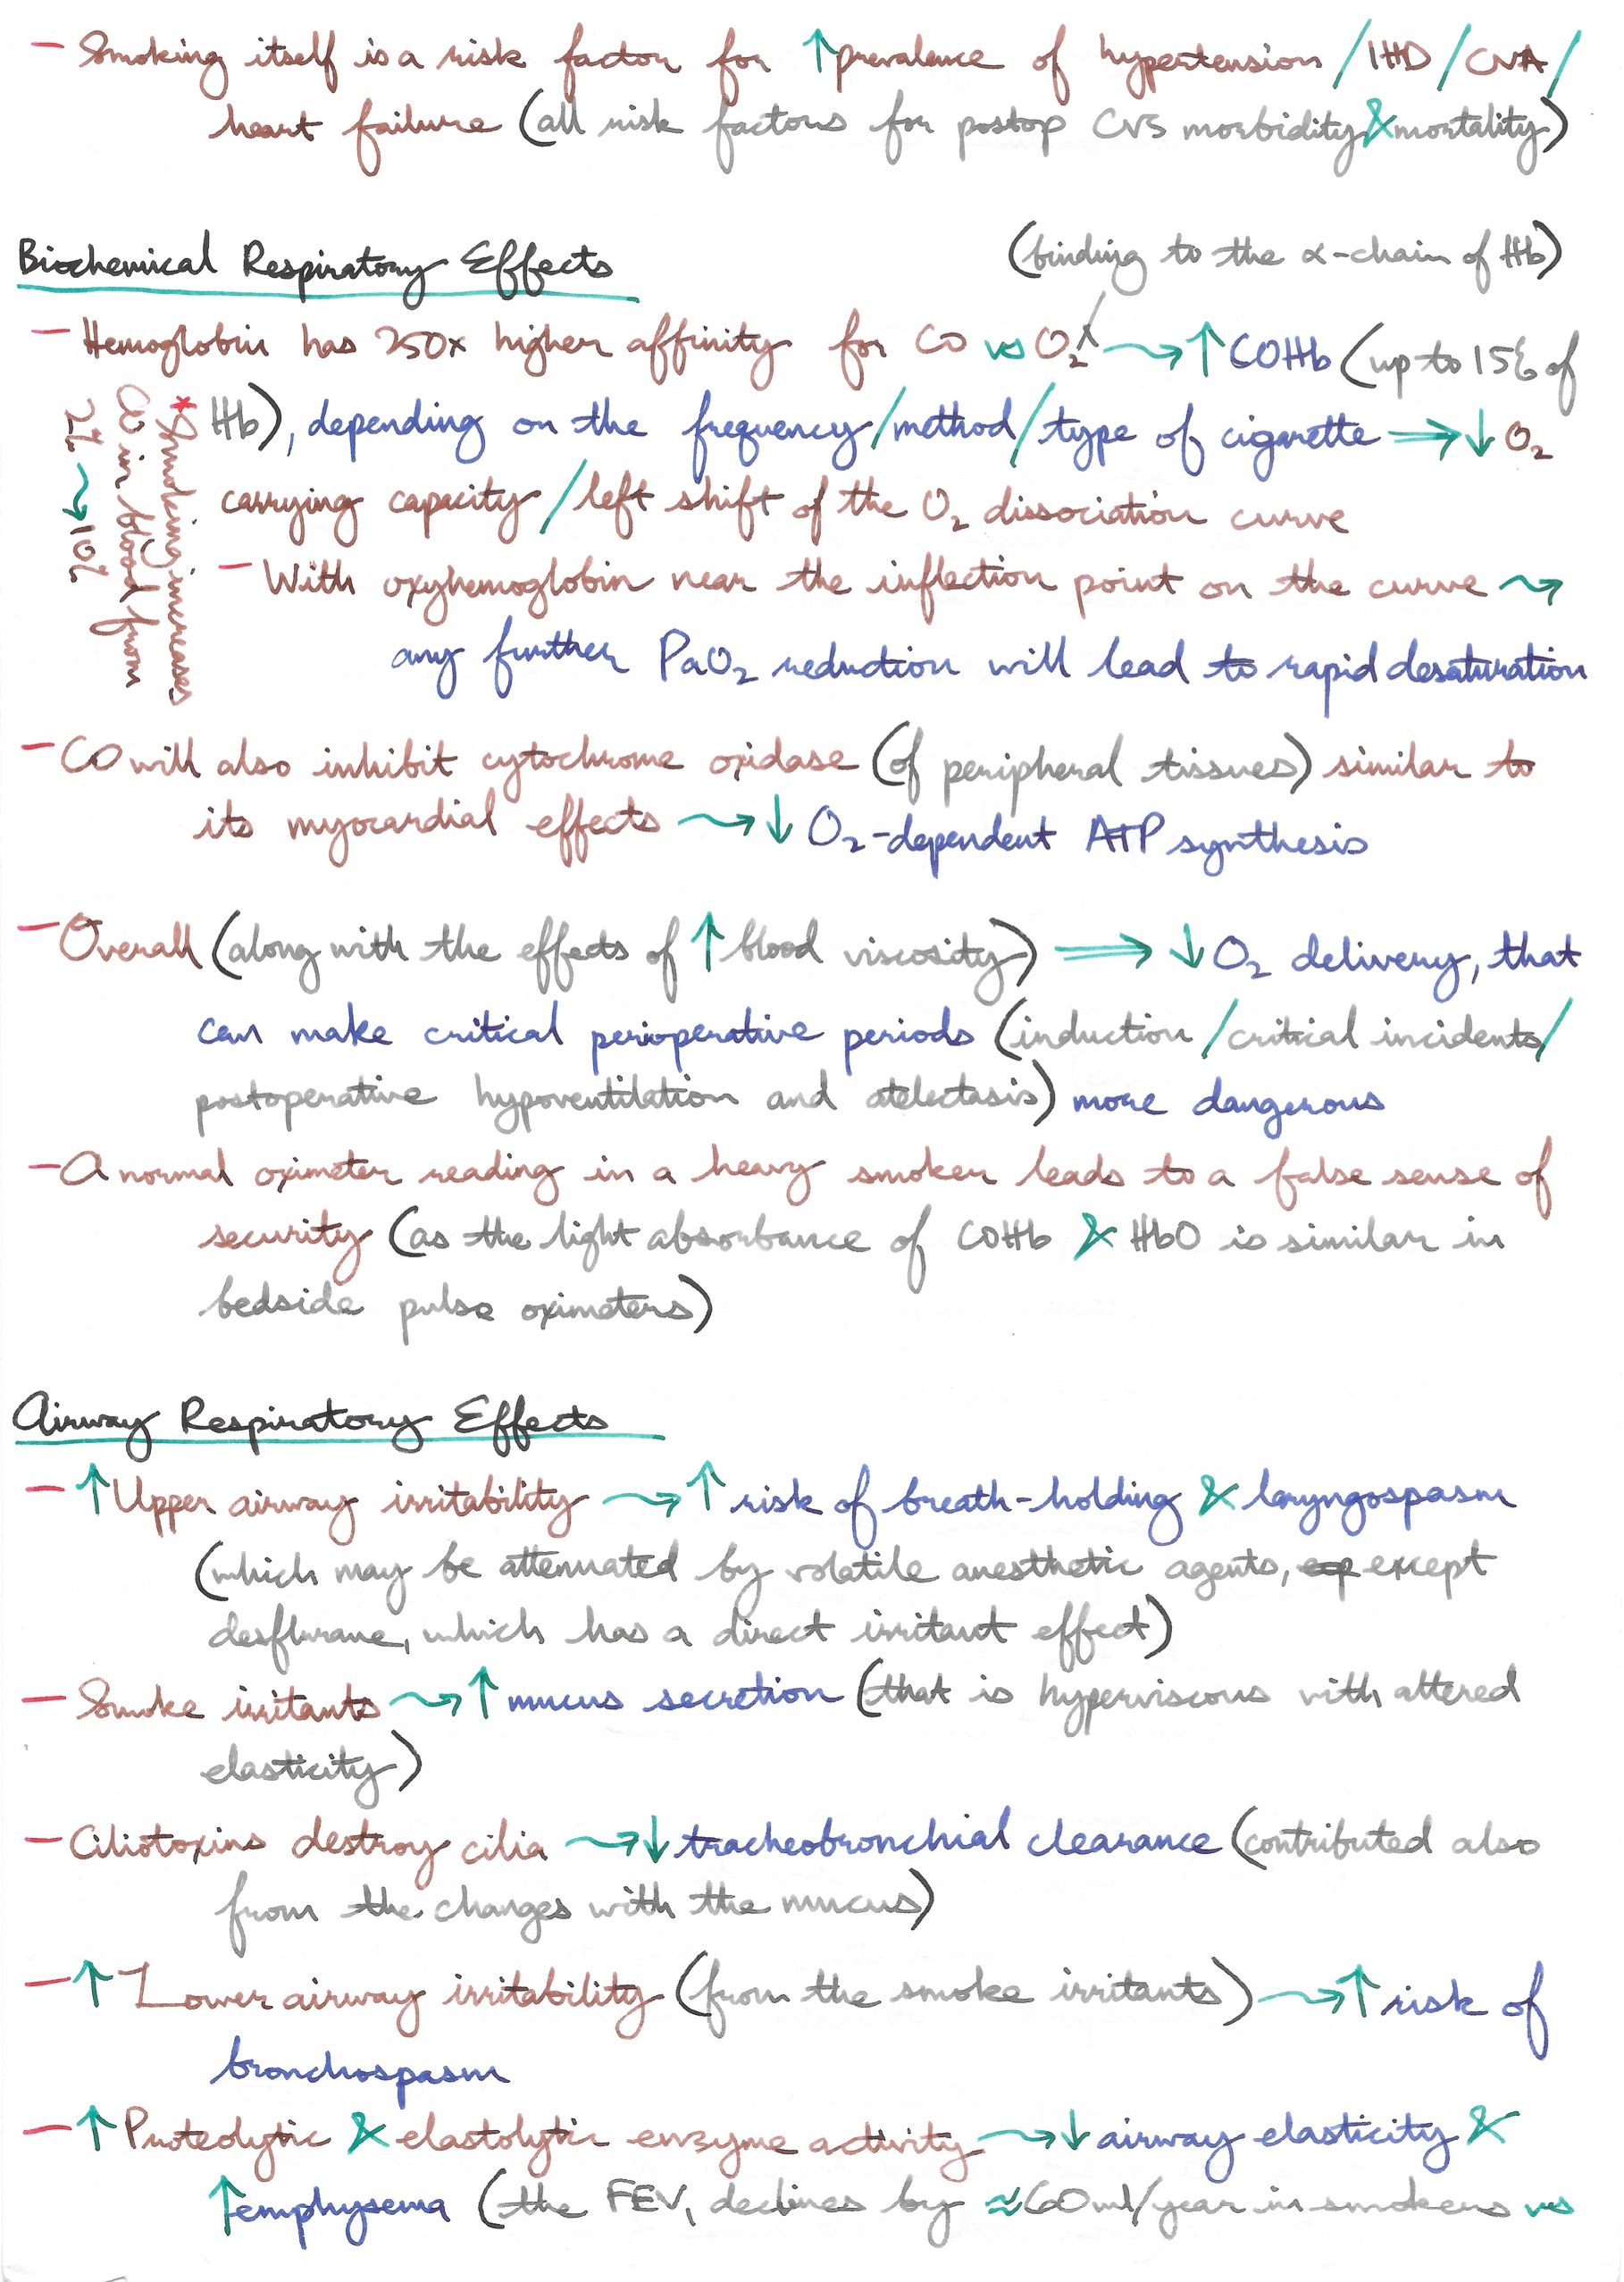 - Smoking itself is a risk factor for ↑prevalence of hypertension/IHD/CVA/
heart failure (all risk factors for postop CVS morbidity & mortality)
Biochemical Respiratory Effects
(binding to the α-chain of Hb)
- Hemoglobin has 250x higher affinity for CO vs O₂ ⇝ ↑ COHb (up to 15% of
Hb), depending on the frequency/method/type of cigarette ⇒ ↓ O₂
carrying capacity/left shift of the O₂ dissociation curve
* Smoking increases
CO in blood from
2% ⇝ 10%
- With oxyhemoglobin near the inflection point on the curve ⇝
any further PaO₂ reduction will lead to rapid desaturation
- CO will also inhibit cytochrome oxidase (of peripheral tissues) similar to
its myocardial effects ⇝ ↓ O₂-dependent ATP synthesis
- Overall (along with the effects of ↑ blood viscosity) ⇒ ↓ O₂ delivery, that
can make critical perioperative periods (induction/critical incidents/
postoperative hypoventilation and atelectasis) more dangerous
- A normal oximeter reading in a heavy smoker leads to a false sense of
security (as the light absorbance of COHb & HbO is similar in
bedside pulse oximeters)
Airway Respiratory Effects
- ↑ Upper airway irritability ⇝ ↑ risk of breath-holding & laryngospasm
(which may be attenuated by volatile anesthetic agents, except
desflurane, which has a direct irritant effect)
- Smoke irritants ⇝ ↑ mucus secretion (that is hyperviscous with altered
elasticity)
- Ciliotoxins destroy cilia ⇝ ↓ tracheobronchial clearance (contributed also
from the changes with the mucus)
- ↑ Lower airway irritability (from the smoke irritants) ⇝ ↑ risk of
bronchospasm
- ↑ Proteolytic & elastolytic enzyme activity ⇝ ↓ airway elasticity &
↑emphysema (the FEV₁ declines by ≈60ml/year in smokers vs